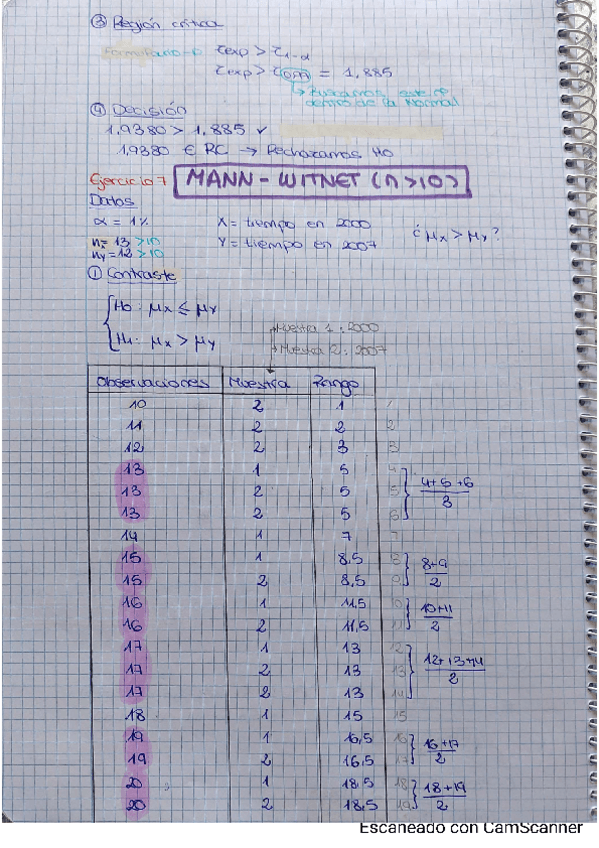 ③ Región crítica
Formulario → τexp > τ1-α
τexp > τ0,99 = 1,885
↳ Buscamos este nº
dentro de la Normal
④ Decisión
1,9380 > 1,885 ✓
1,9380 ∈ RC → Rechazamos H0
Ejercicio 7 MANN-WITNET (n>10)
Datos
α = 1% X = tiempo en 2000
nx = 13 >10 Y = tiempo en 2007 ¿ μx > μy ?
ny = 12 >10
① Contraste
H0: μx ≤ μy
H1: μx > μy
→ Muestra 1: 2000
→ Muestra 2: 2007
Observaciones Muestra Rango
10 2 1 1
11 2 2 2
12 2 3 3
13 1 5 4
13 2 5 5 } 4+5+6 / 3
13 2 5 6
14 1 7 7
15 1 8,5 8 } 8+9 / 2
15 2 8,5 9
16 1 11,5 10 } 10+11 / 2
16 2 11,5 11
17 1 13 12
17 2 13 13 } 12+13+14 / 2
17 2 13 14
18 1 15 15
19 1 16,5 16 } 16+17 / 2
19 2 16,5 17
20 1 18,5 18 } 18+19 / 2
20 2 18,5 19
Escaneado con CamScanner